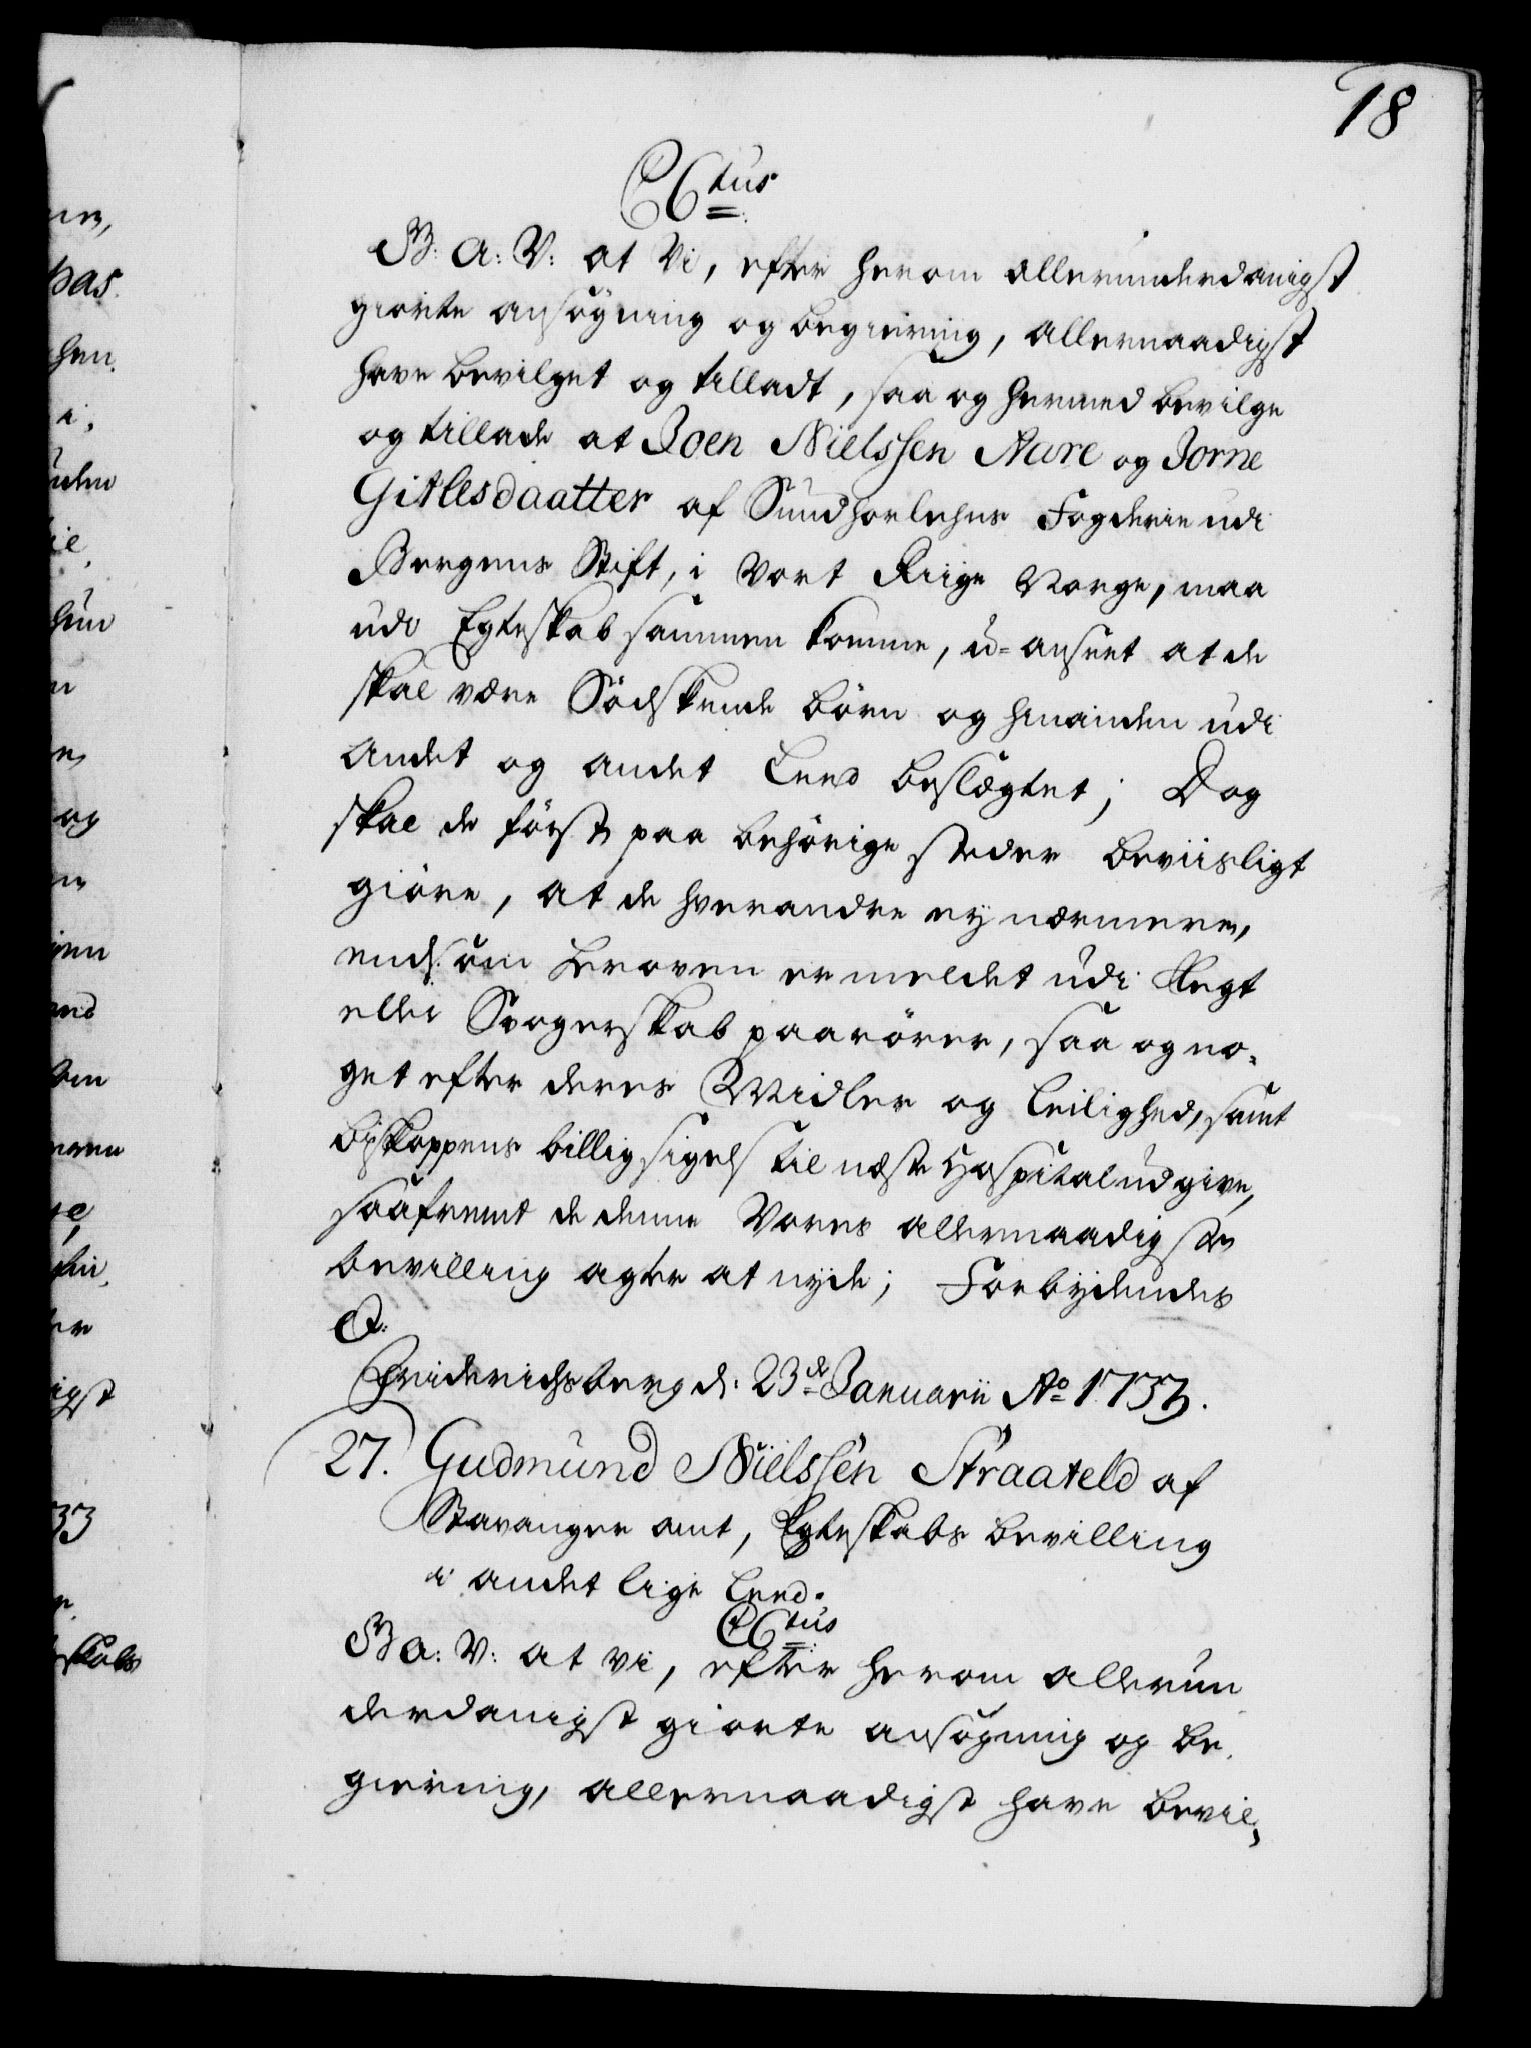 18
CCtus
G: A: V: at Vi, efter herom allerunderdanigst
giorte ansøgning og begiering, allernaadigst
have bevilget og tilladt, saa og hermed bevilge
og tillade at Joen Nielssen Aare og Jorne
Gitlesdaatter af Sundhorlehns Fogderie udi
Bergens Stift, i Vort Riige Norge, maa
udi Egteskab sammen komme, u-anseet at de
skal være Sødskende børn og hinanden udi
andet og andet Leed beslægtet; Dog
skal de først paa behørige steder beviisligt
giøre, at de hverandre ey nærmere,
end som heroven er meldet udi Slegt
eller Svogerskab paarører, saa og no-
get efter deres Midler og Leilighed, samt
biskoppens billig sigelse til næste Hospital udgive,
saafremt de denne Vores allernaadigste
bevilling agter at nyde; Forbydendes
&:
Friderichsberg d: 23de Januarii Ao 1733.
27. Gudmund Nielssen Straateld af
Stavanger amt, Egteskabs bevilling
i andet lige Leed.
CCtus
G a: V: at vi, efter herom allerun
derdanigst giorte ansøgning og be-
giering, allernaadigst have bevil-